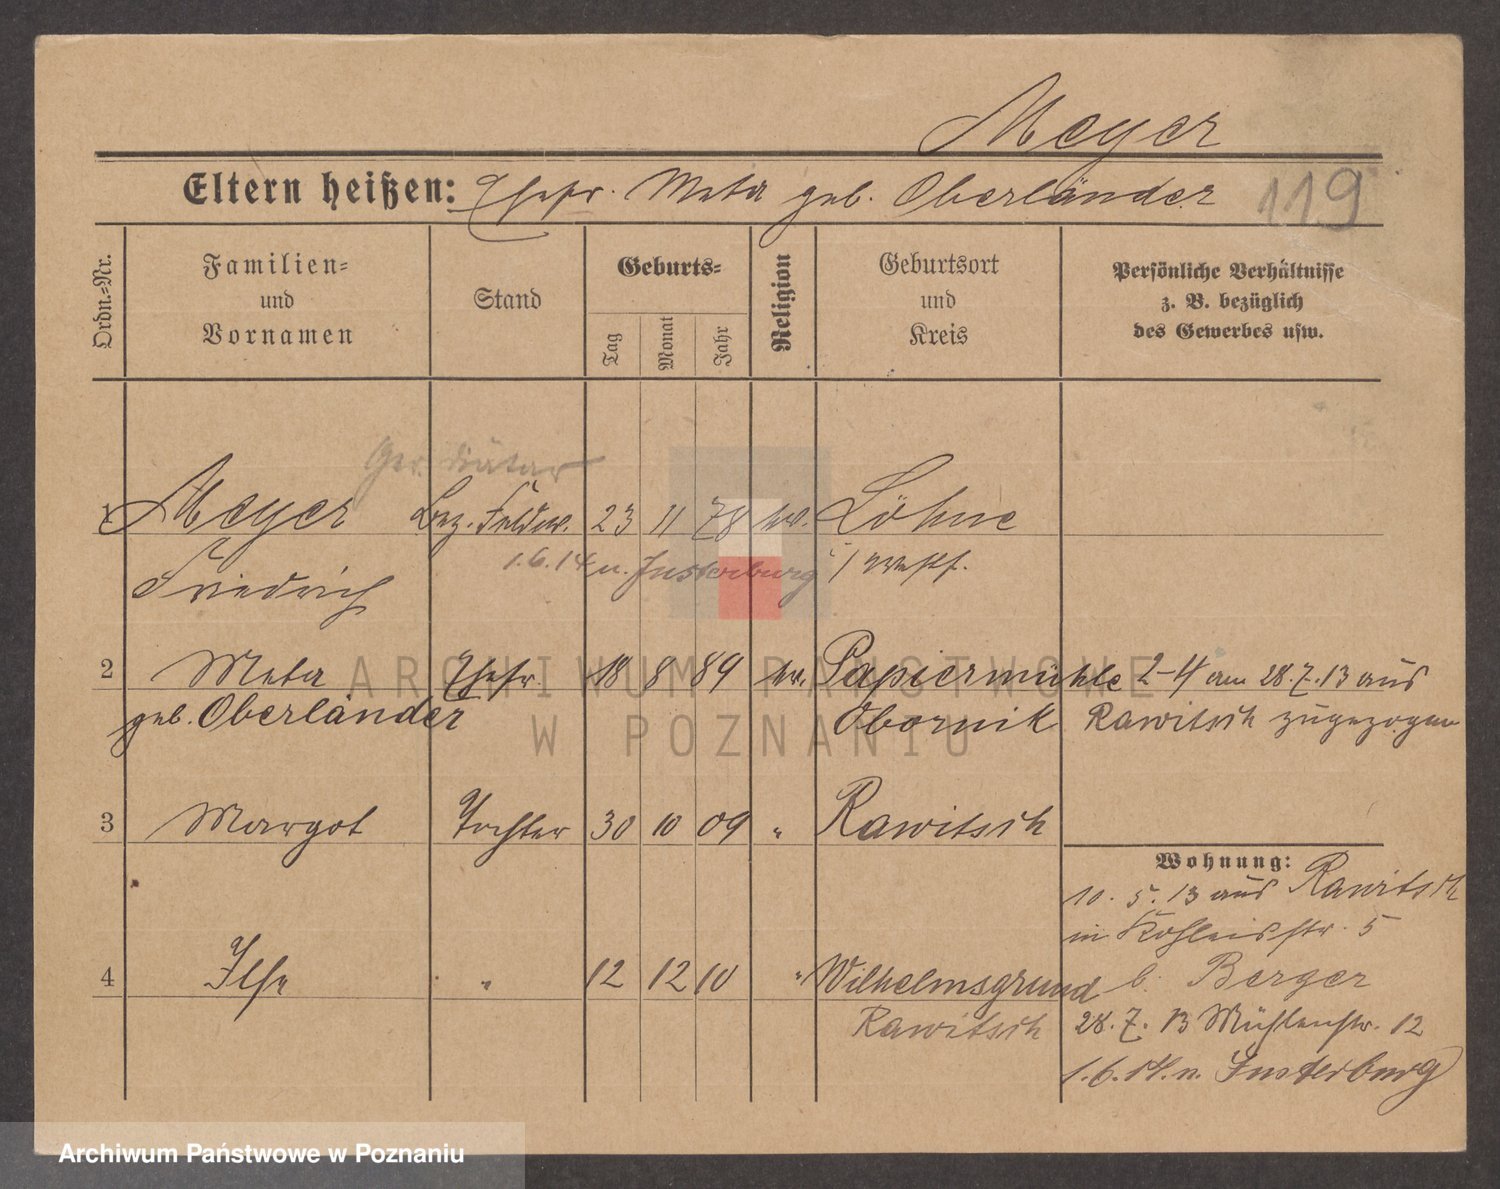 Meyer
Eltern heißen: Ehefr. Meta geb. Oberländer
119
Ordn.-Nr.
Familien-
und
Vornamen
Stand
Geburts-
Tag
Monat
Jahr
Religion
Geburtsort
und
Kreis
Persönliche Verhältnisse
z. B. bezüglich
des Gewerbes usw.
Ger. Diätar
1 Meyer Bez. Feldw. 23 11 78 ev. Löhne
Friedrich
1.6.14 n. Insterburg
/ Westf.
2 Meta Ehefr. 18 8 89 ev. Papiermühle 2-4 am 28.7.13 aus
geb. Oberländer Obornik Rawitsch zugezogen
3 Margot Tochter 30 10 09 " Rawitsch
Wohnung:
10. 5. 13 aus Rawitsch
in 5
4 Ilse " 12 12 10 " Wilhelmsgrund
b. Berger
Rawitsch
28. 7. 13 Mühlenstr. 12
1.6.14. n. Insterburg
ARCHIWUM PAŃSTWOWE
W POZNANIU
Archiwum Państwowe w Poznaniu